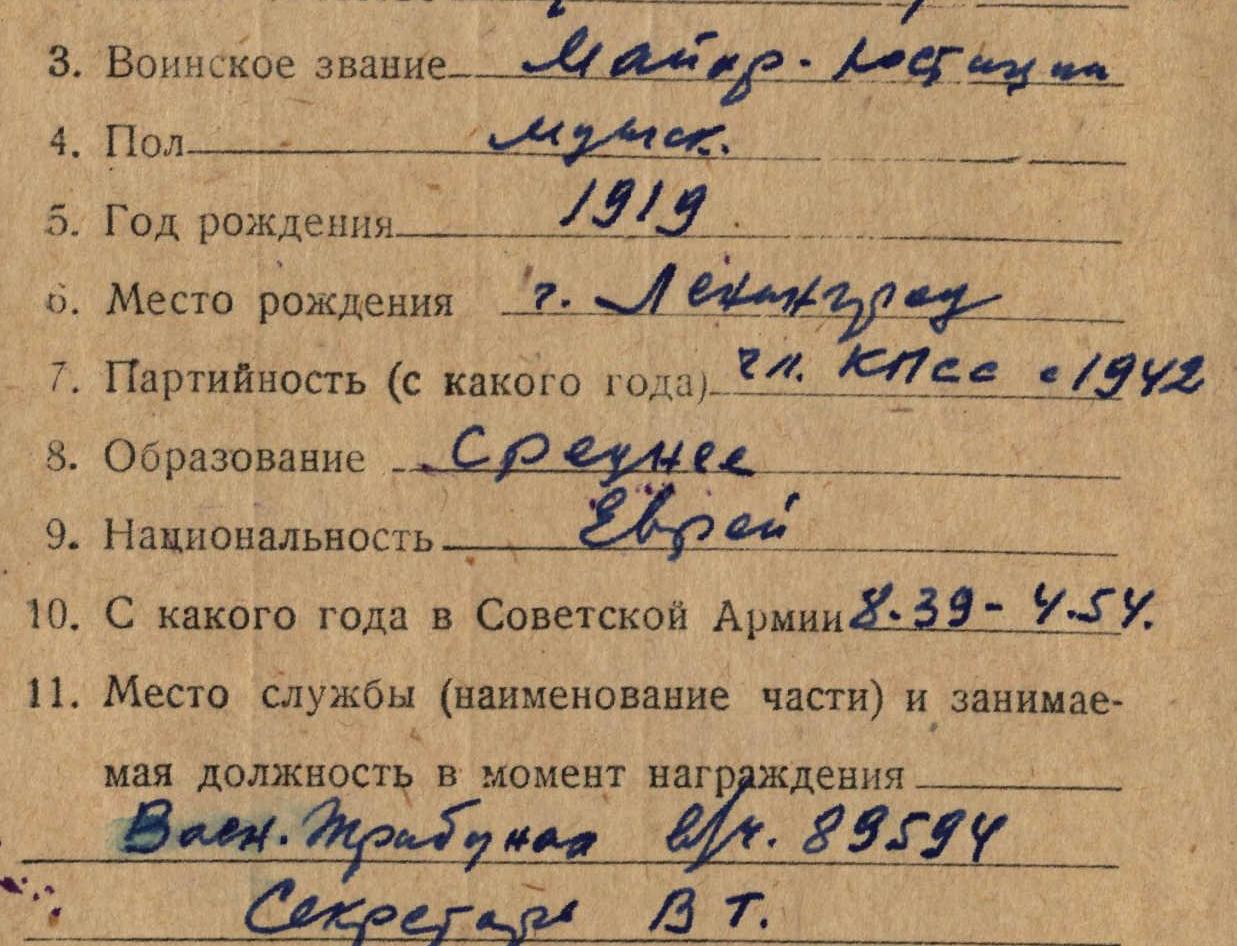 3. Воинское звание Майор. юстиции
4. Пол мужск.
5. Год рождения 1919
6. Место рождения г. Ленинград
7. Партийность (с какого года) чл. КПСС с 1942
8. Образование Среднее
9. Национальность Еврей
10. С какого года в Советской Армии 8.39 - 4.54.
11. Место службы (наименование части) и занимае-
мая должность в момент награждения
Воен. Трибунал в/ч. 89594
Секретарь ВТ.